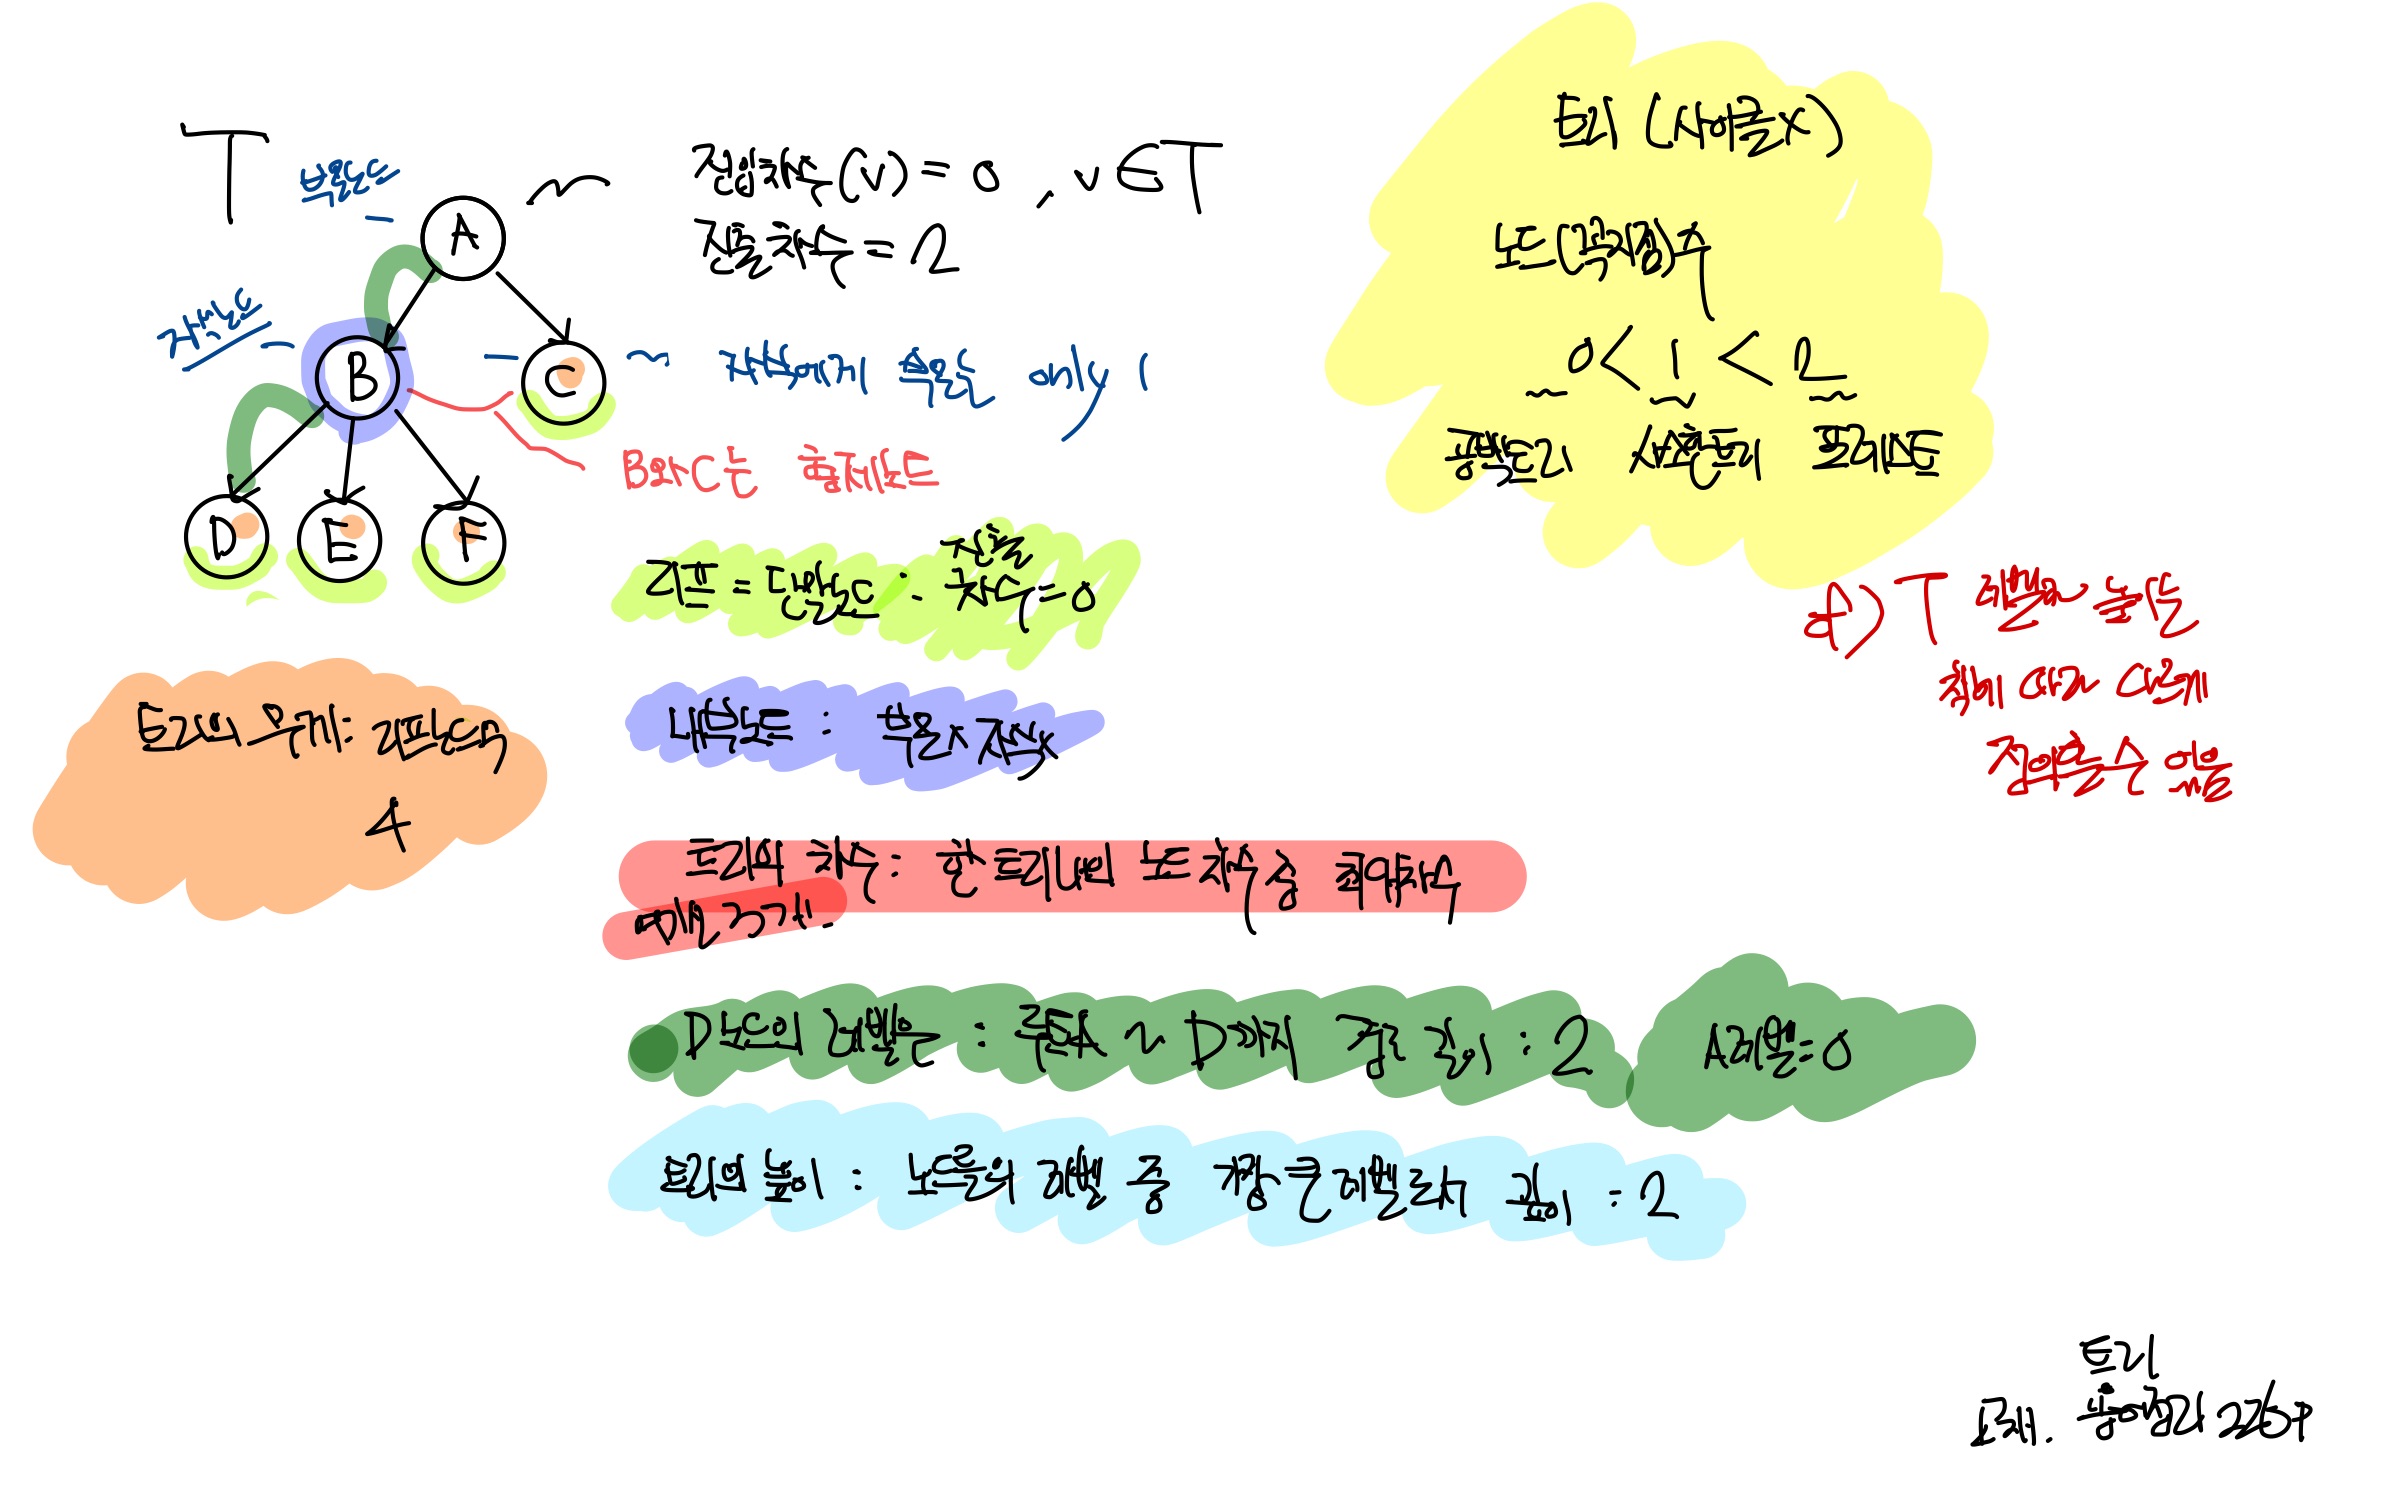 T
부모노드
A
진입차수(v) = 0, v∈T
진출차수 = 2
자식노드
B
C
자식에게 부모는 only 1
B와 C는 형제노드
D
E
F
리프 = 단말노드 : 진출차수 = 0
내부노드 : 부모 & 자식
트리의 무게: 리프노드 수
4
트리의 차수: 한 트리내의 노드 차수중 최대차수
여기선 3 가지.
D 노드의 레벨 수 : 루트A ~ D까지 경로 길이 : 2
A레벨 = 0
트리의 높이 : 노드들의 레벨 중 가장 큰 레벨로서 깊이 : 2
트리 (사이클X)
노드 (최대)차수
0 < 1 < 2
사향트리
d) T 레벨과 높이는
책에 따라 다르게
정의될 수 있음
트리
교재. 용어정리 226p